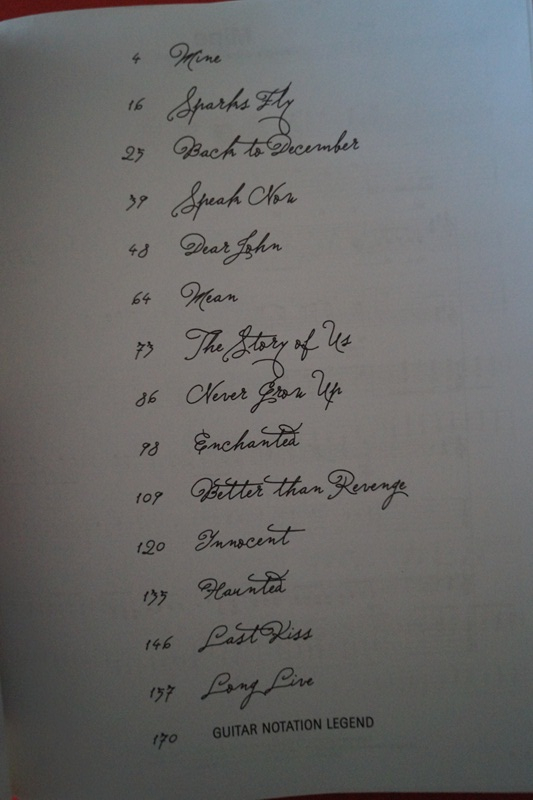 4 Mine
16 Sparks Fly
25 Back to December
39 Speak Now
48 Dear John
64 Mean
75 The Story of Us
86 Never Grow Up
98 Enchanted
109 Better than Revenge
120 Innocent
135 Haunted
146 Last Kiss
157 Long Live
170 GUITAR NOTATION LEGEND